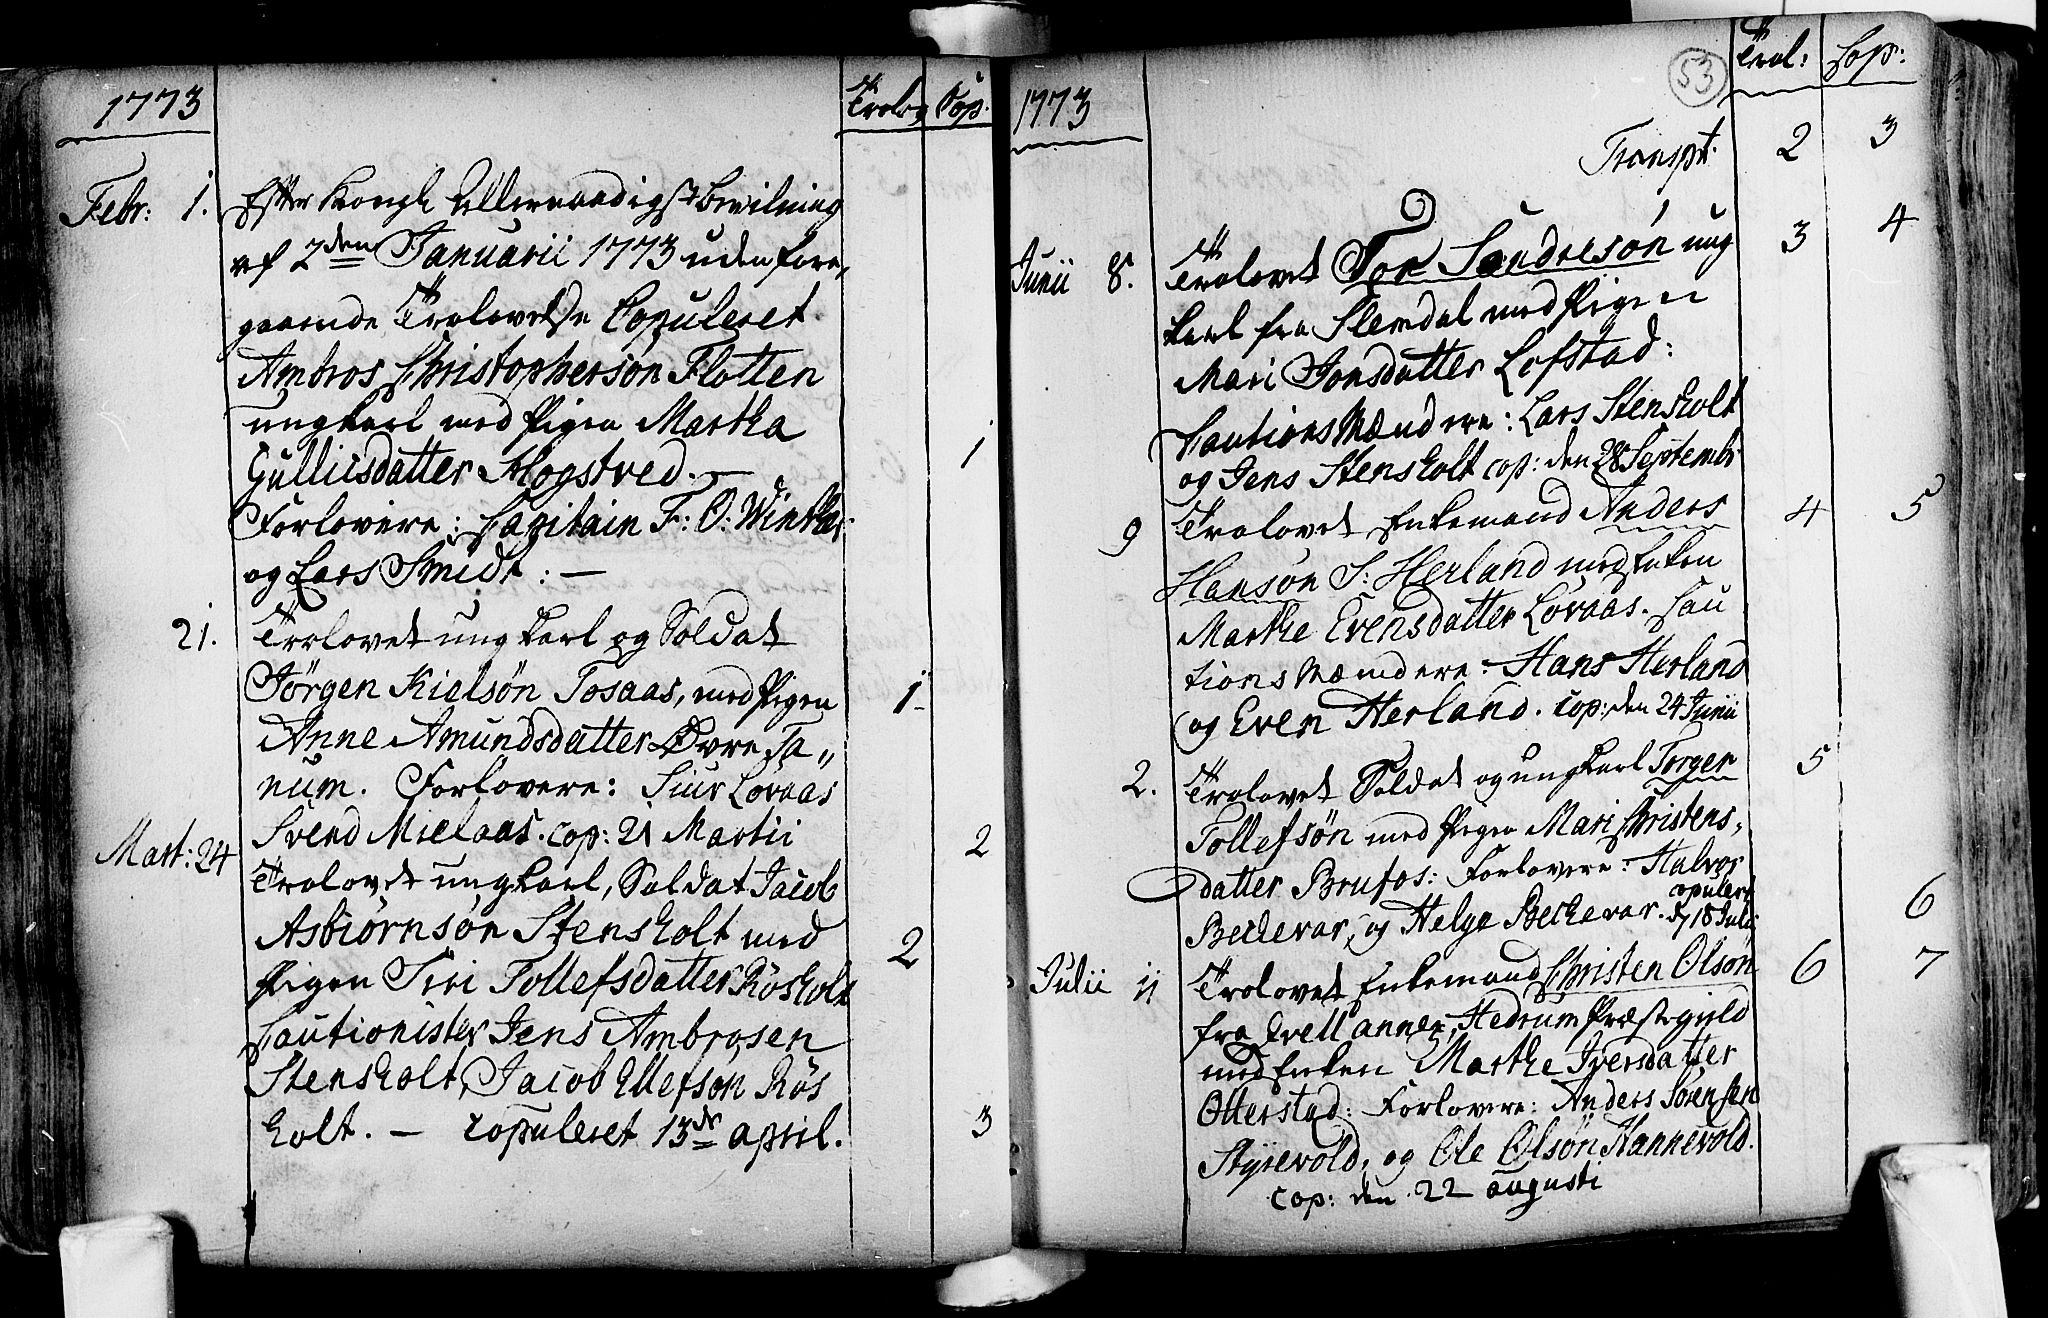 1773
Trolov Cop:
Febr: 1. Efter Kongl: Allernaadigst Bevilning
af 2den Januarii 1773 uden fore„
gaaende Trolovelse Copuleret
Ambros Christophersøn Flotten
ungkarl med Pigen Martha
Gullicsdatter Mogstved. — 1
Forlovere: Capitain F: O: Winther
og Lars Smidt: —
21. Trolovet ungkarl og Soldat
Jörgen Kielsøn Tosaas, med Pigen 1
Anne Amundsdatter Øvre Ta„
num. Forlovere: Siur Lovaas
Svend Mielaas. cop: 21 Martii 2
Mart: 24 Trolovet ungkarl, Soldat Jacob
Asbiörnsön Stensholt med 2
Pigen Siri Tollefsdatter Rösholt
Cautionister Jens Ambrosen
Stensholt, Jacob Ellefsøn Rös
holt. — copuleret 13de april. 3
1773
53
Trol: Cop:
Transpt. 2 3
Junii 8. Trolovet Tor Sondresøn ung 3 4
karl fra Slemdal med Pigen
Mari Jonsdatter Lofstad:
Cautions Mændere: Lars Stensholt
og Jens Stensholt cop: den 28 Septembr
9 Trolovet Enkemand Anders 4 5
Hansøn S: Herland med Enken
Marthe Evensdatter Lovaas. Cau
tions Mændere: Hans Herland
og Even Herland. cop: den 24 Junii
2. Trolovet Soldat og ungkarl Torger 5
Tollefsøn med Pigen Mari Christens„
datter Brufos: Forlovere: Halvor
Beckevar, og Helge Beckevar. copulert d 18 Julii 6
Julii 11 Trolovet Enkemand Christen Olsøn 6 7
fra Qvell annex, Hedrum Præstegield
med Enken Marthe Iversdatter
Otterstad: Forlovere: Anders Sörensen
Styrevold, og Ole Olsøn Hannevold.
cop: den 22 augusti